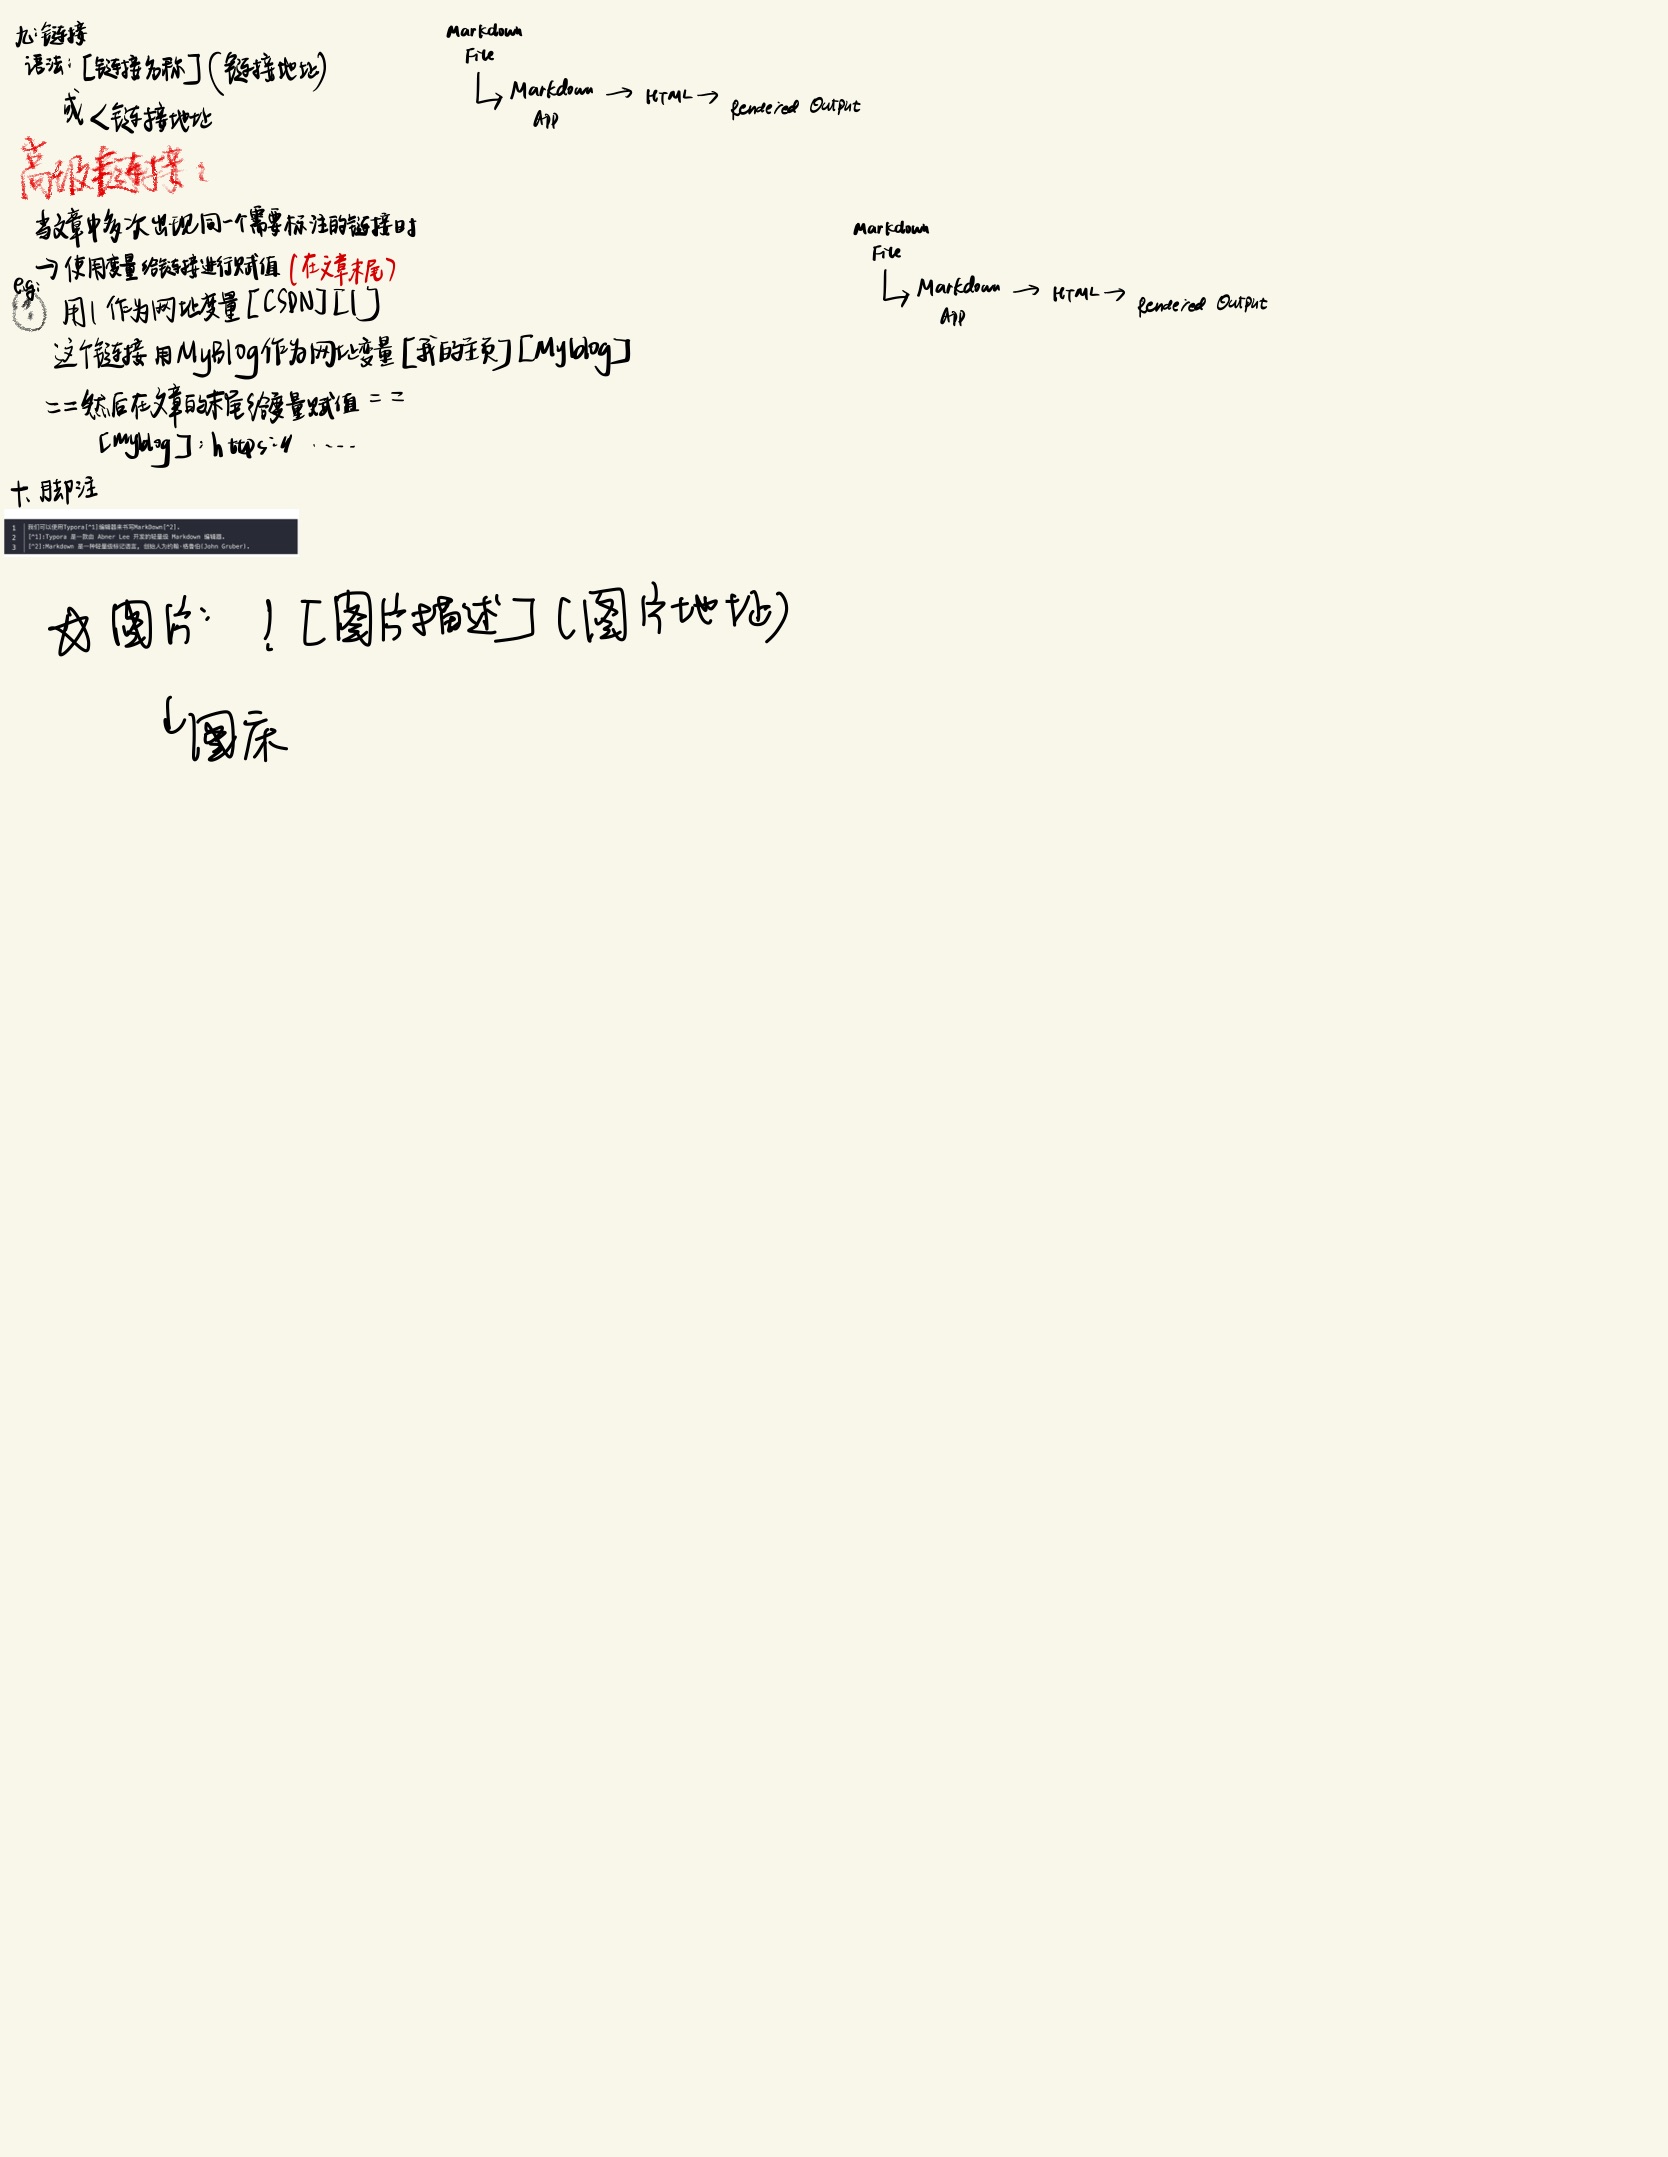 九:链接
语法:[链接名称](链接地址)
或<链接地址
高级链接:
当文章中多次出现同一个需要标注的链接时
→使用变量给链接进行赋值(在文章末尾)
eg:
用1作为网址变量[CSDN][1]
这个链接用MyBlog作为网址变量[我的主页][Myblog]
==然后在文章的末尾给变量赋值==
[Myblog]:https:// ·····
十、脚注
1 我们可以使用Typora[^1]编辑器来书写MarkDown[^2].
2 [^1]:Typora 是一款由 Abner Lee 开发的轻量级 Markdown 编辑器.
3 [^2]:Markdown 是一种轻量级标记语言, 创始人为约翰·格鲁伯(John Gruber).
☆图片: ![图片描述](图片地址)
↳图床
Markdown
File
↳Markdown → HTML → Rendered Output
App
Markdown
File
↳Markdown → HTML → Rendered Output
App